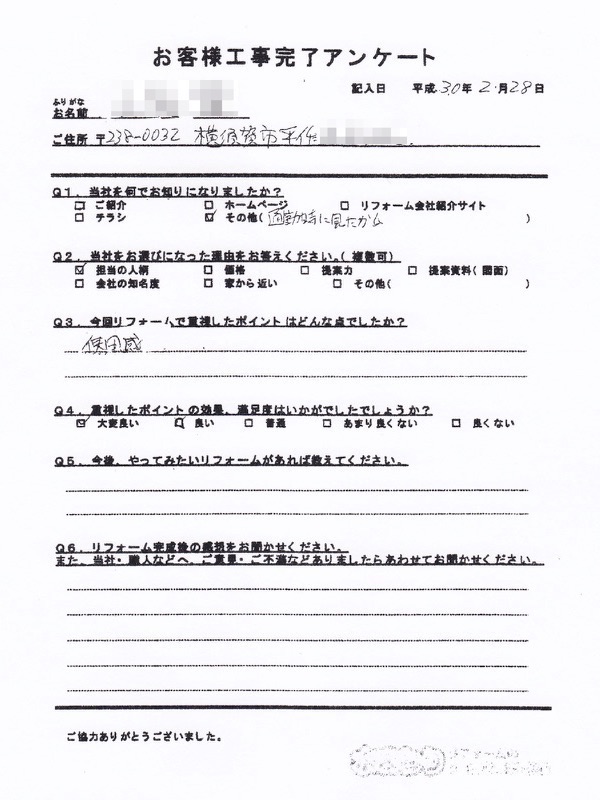 お客様工事完了アンケート
記入日 平成30年2月28日
ふりがな
お名前
ご住所 〒238-0032 横須賀市平作
Q1. 当社を何でお知りになりましたか?
□ ご紹介 □ ホームページ □ リフォーム会社紹介サイト
□ チラシ ☑ その他(通勤時に見たから)
Q2. 当社をお選びになった理由をお答えください。(複数可)
☑ 担当の人柄 □ 価格 □ 提案力 □ 提案資料(図面)
□ 会社の知名度 □ 家から近い □ その他( )
Q3. 今回リフォームで重視したポイントはどんな点でしたか?
Q4. 重視したポイントの効果、満足度はいかがでしたでしょうか?
☑ 大変良い ☑ 良い □ 普通 □ あまり良くない □ 良くない
Q5. 今後、やってみたいリフォームがあれば教えてください。
Q6. リフォーム完成後の感想をお聞かせください。
また、当社・職人などへ、ご意見・ご不満などありましたらあわせてお聞かせください。
ご協力ありがとうございました。